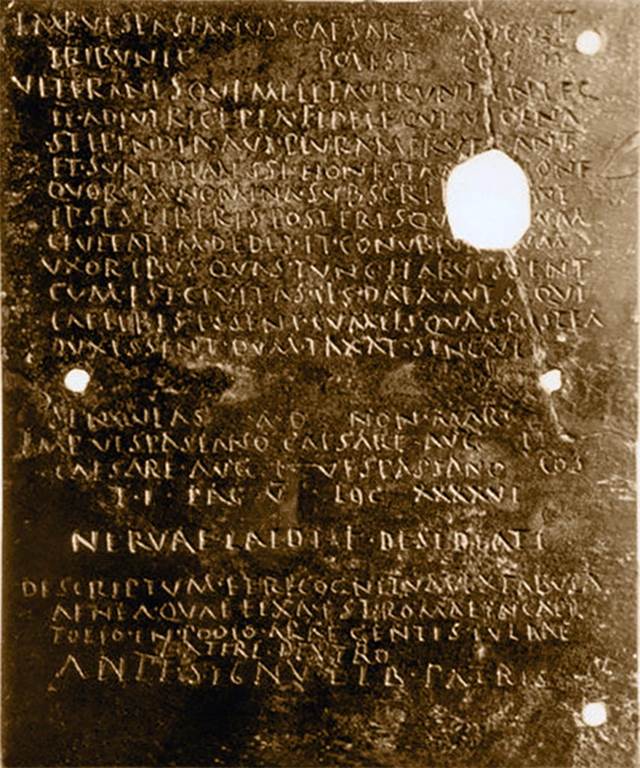 IMP VESPASIANVS CAESAR AVGVST
TRIBVNIC POTEST COS II
VETERANIS QVI MILITAVERVNT IN LEG
II·ADIVTRICE PIA FIDELE QVI VICENA
STIPENDIA·AVT PLVRA
ET·SVNT DIMISSI HONESTA
QVORVM NOMINA SVBSCRI
IPSIS LIBERIS POSTERISQV
CIVITATEM·DEDIT·ET CONVBIV CVM
VXORIBVS QVAS TVNC HABVISSENT
CVM EST CIVITAS IIS DATA AVT SI QVI
CAELIBES ESSENT·CVM IIS QVAS·POSTEA
DVXISSENT·DVM TAXAT·SINGVLI
SINGVLAS A·D NON·MART
IMP VESPASIANO CAESARE AVG II
CAESARE·AVG·F·VESPASIANO COS
T·I· PAG·V· LOC XXXXVI
NERVAE LAIDI F·DESIDIATI
DESCRIPTVM·ET RECOGNITVM EX TABVLA
AENEA·QVAE FIXA EST ROMAE IN CAPI
TOLIO·IN PODIO ARAE GENTIS IVLIAE
LATERE DEXTRO
ANTE SIGNV LIB·PATRIS